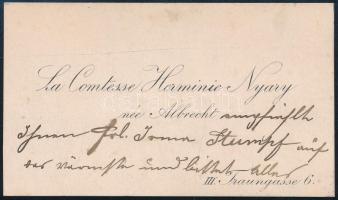 La Comtesse Herminie Nyáry
née Albrecht empfiehlt
Ihnen Frl. Irma Stumpf auf
das wärmste und bittet Alles
III. Traungasse 6.